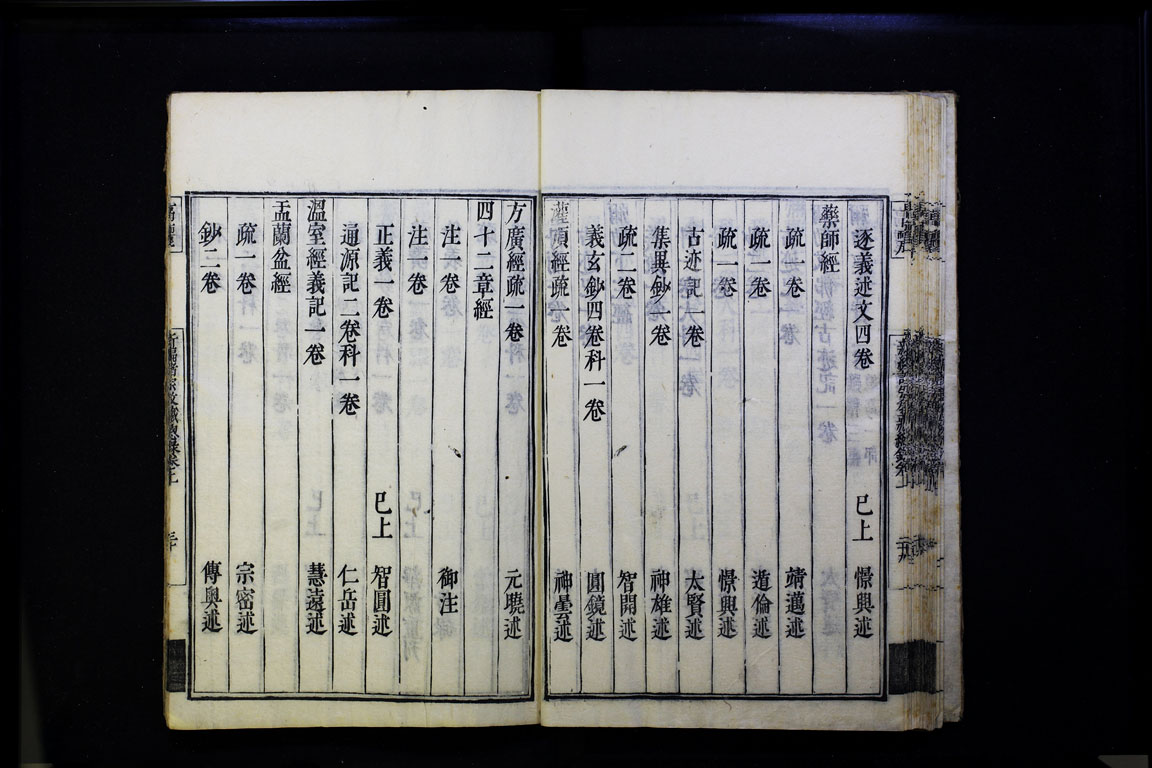 逐義述文四卷 已上 憬興述
藥師經
疏一卷 靖邁述
疏一卷 遁倫述
疏一卷 憬興述
古迹記一卷 太賢述
集異鈔一卷 神雄述
疏二卷 智開述
義玄鈔四卷科一卷 圓鏡述
灌頂經疏一卷 神曇述
方廣經疏一卷 元曉述
四十二章經
注一卷 御注
注一卷
正義一卷 已上 智圓述
通源記二卷科一卷 仁岳述
溫室經義記一卷 慧遠述
盂蘭盆經
疏一卷 宗密述
鈔二卷 傳奧述